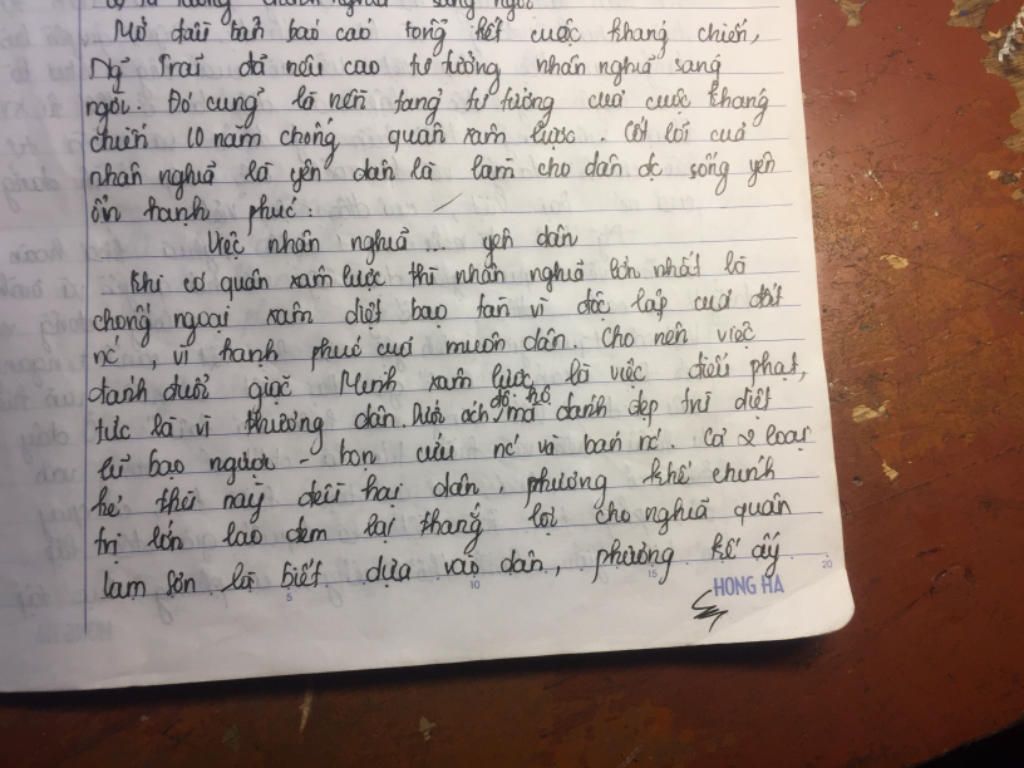 tư tưởng nhân nghĩa sáng ngời
Mở đầu bản báo cáo tổng kết cuộc kháng chiến,
Ng~ Trãi đã nêu cao tư tưởng nhân nghĩa sáng
ngời. Đó cũng là nền tảng tư tưởng của cuộc kháng
chiến 10 năm chống quân xâm lược. Cốt lõi của
nhân nghĩa là yên dân là làm cho dân đc sống yên
ổn hạnh phúc.
Việc nhân nghĩa ... yên dân
Khi có quân xâm lược thì nhân nghĩa lớn nhất là
chống ngoại xâm diệt bạo tàn vì độc lập của đất
nc, vì hạnh phúc của muôn dân. Cho nên việc
đánh đuổi giặc Minh xâm lược là việc điếu phạt,
đô hộ
tức là vì thương dân. Dưới ách mà đánh dẹp trừ diệt
lũ bạo ngược - bọn cứu nc và bán nc. Cả 2 loại
kẻ thù này đều hại dân, phương kế chính
trị lớn lao đem lại thắng lợi cho nghĩa quân
Lam Sơn là biết dựa vào dân, phương kế ấy
5 10 15 20
HONG HA